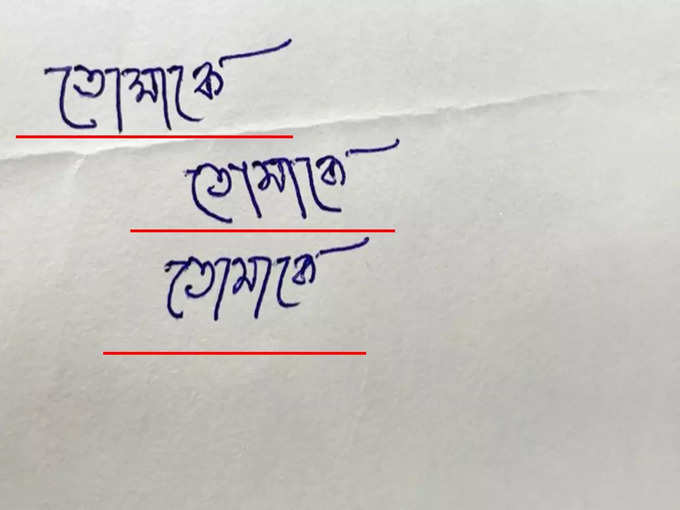 তোমাকে
তোমাকে
তোমাকে